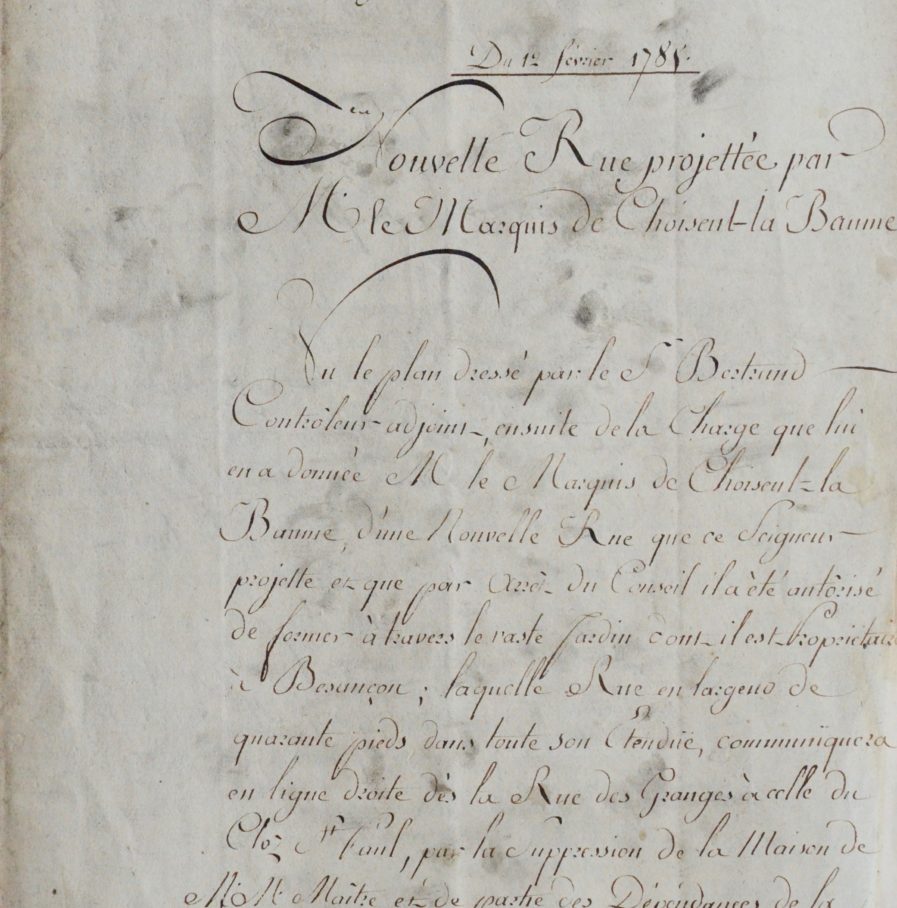 Du 12 février 1785.
Nouvelle Rue projettée par
M. le Marquis de Choiseul-la Baume
Vu le plan dressé par le Sr. Bertrand
Contrôleur-adjoint, ensuite de la Charge que lui
en a donnée M. le Marquis de Choiseul-la
Baume, d'une Nouvelle Rue que ce Seigneur
projette et que par Arrêt du Conseil il a été autôrisé
de former à travers le vaste Jardin dont il est Propriétaire
à Besançon; laquelle Rue en largeur de
quarante pieds dans toute son Etenduë, communiquera
en ligne droite dès la Rue des Granges à celle du
Clos St. Paul, par la Suppression de la Maison de
M. Maître et de partie des Dépendances de la